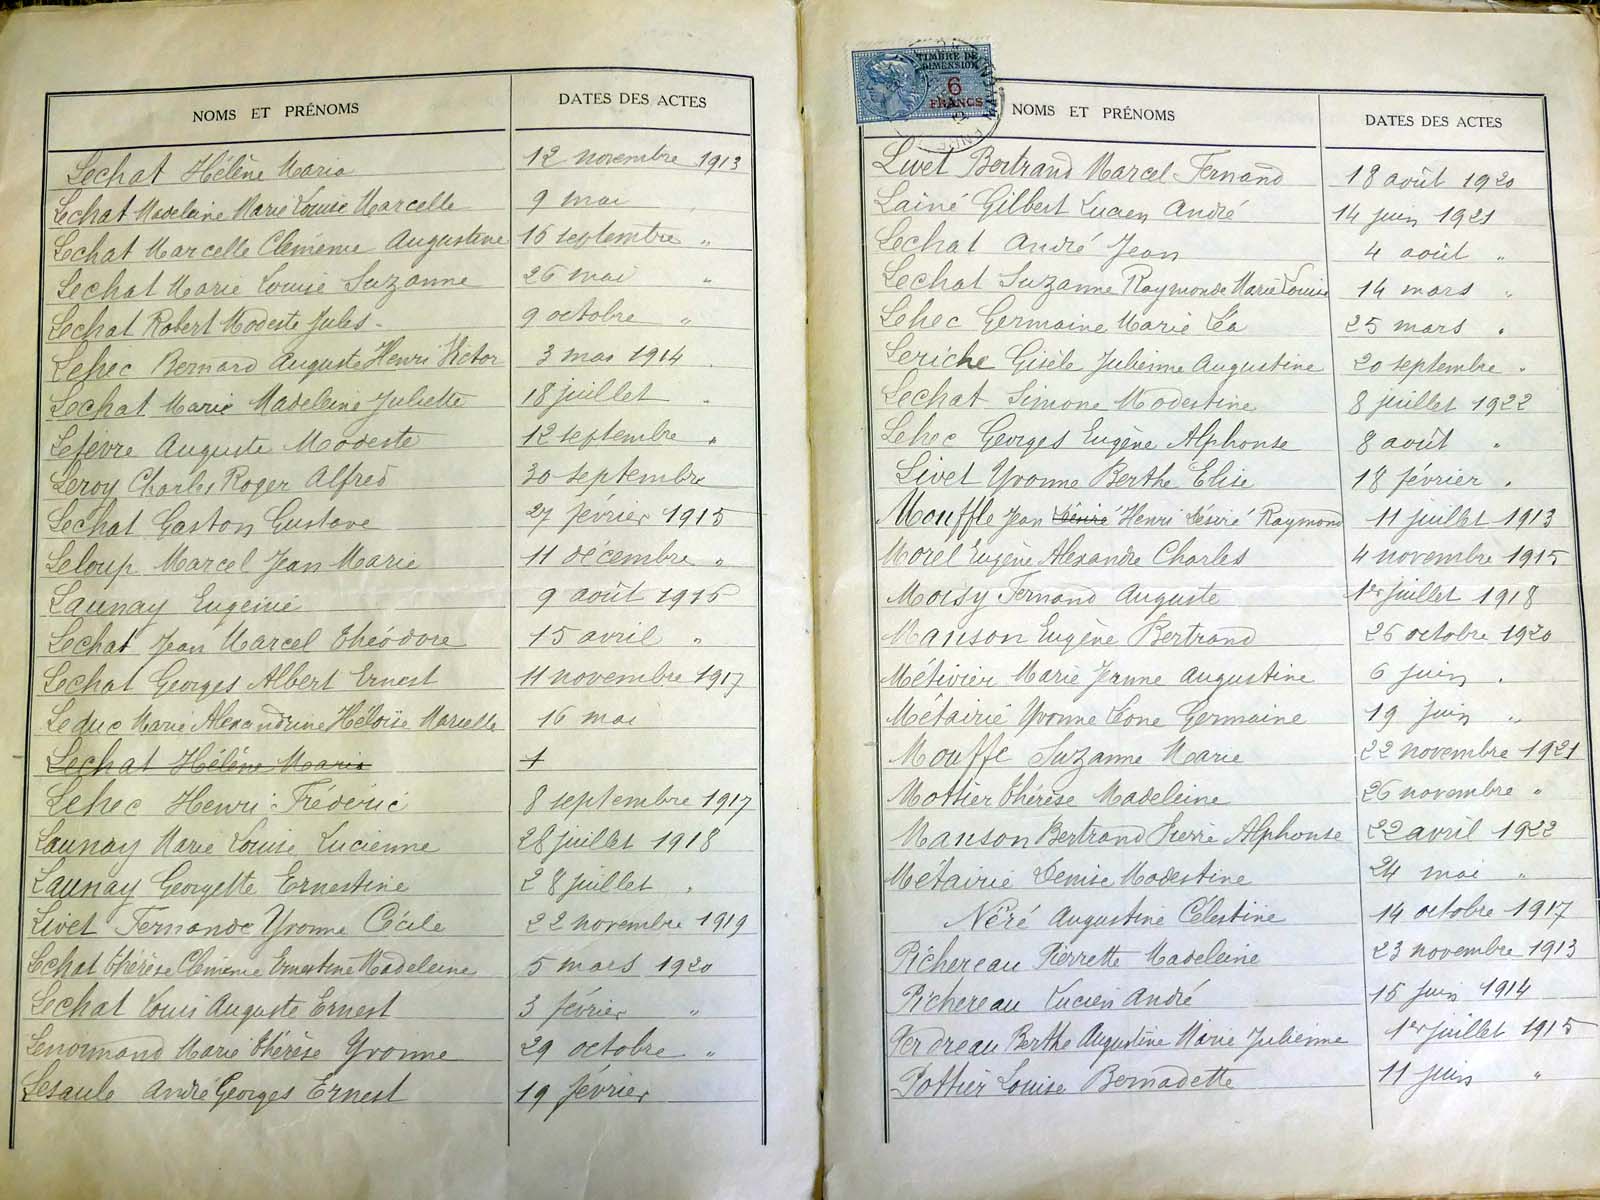 NOMS ET PRÉNOMS DATES DES ACTES
Lechat Hélène Maria 12 novembre 1913
Lechat Madeleine Marie Louise Marcelle 9 mai
Lechat Marcelle Clémence Augustine 16 septembre "
Lechat Marie Louise Suzanne 26 mai "
Lechat Robert Modeste Jules - 9 octobre "
Lehec Bernard Auguste Henri Victor 3 mai 1914
Lechat Marie Madeleine Juliette 18 juillet "
Lefèvre Auguste Modeste 12 septembre "
Leroy Charles Roger Alfred 30 septembre
Lechat Gaston Gustave 27 février 1915
Leloup Marcel Jean Marie 11 décembre "
Launay Eugénie 9 août 1916
Lechat Jean Marcel Théodore 15 avril "
Lechat Georges Albert Ernest 11 novembre 1917
Leduc Marie Alexandrine Héloïse Marcelle 16 mai
Lechat Hélène Maria +
Lehec Henri Fréderic 8 septembre 1917
Launay Marie Louise Lucienne 28 juillet 1918
Launay Georgette Ernestine 28 juillet "
Livet Fernande Yvonne Cécile 22 novembre 1919
Lechat Thérèse Clémence Ernestine Madeleine 5 mars 1920
Lechat Louis Auguste Ernest 3 février "
Lenormand Marie Thérèse Yvonne 29 octobre "
Lesaule André Georges Ernest 19 février
TIMBRE DE
DIMENSION
6
FRANCS
NOMS ET PRÉNOMS DATES DES ACTES
Livet Bertrand Marcel Fernand 18 août 1920
Lainé Gilbert Lucien André 14 juin 1921
Lechat André Jean 4 août "
Lechat Suzanne Raymonde Marie Louise 14 mars "
Lehec Germaine Marie Léa 25 mars "
Leriche Gisèle Julienne Augustine 20 septembre "
Lechat Simone Modestine 8 juillet 1922
Lehec Georges Eugène Alphonse 8 août "
Livet Yvonne Berthe Elise 18 février "
Mouffle Jean Désiré Henri Désiré Raymond 11 juillet 1913
Morel Eugène Alexandre Charles 4 novembre 1915
Moisy Fernand Auguste 1er juillet 1918
Manson Eugène Bertrand 26 octobre 1920
Métivier Marie Jeanne Augustine 6 juin "
Métairie Yvonne Léone Germaine 19 juin "
Mouffe Suzanne Marie 22 novembre 1921
Mottier Thérèse Madeleine 26 novembre "
Manson Bertrand Pierre Alphonse 22 avril 1922
Métairie Denise Modestine 24 mai "
Néré Augustine Célestine 14 octobre 1917
Pichereau Pierrette Madeleine 23 novembre 1913
Pichereau Lucien André 15 juin 1914
Perdreau Berthe Augustine Marie Julienne 1er juillet 1915
Pottier Louise Bernadette 11 juin "